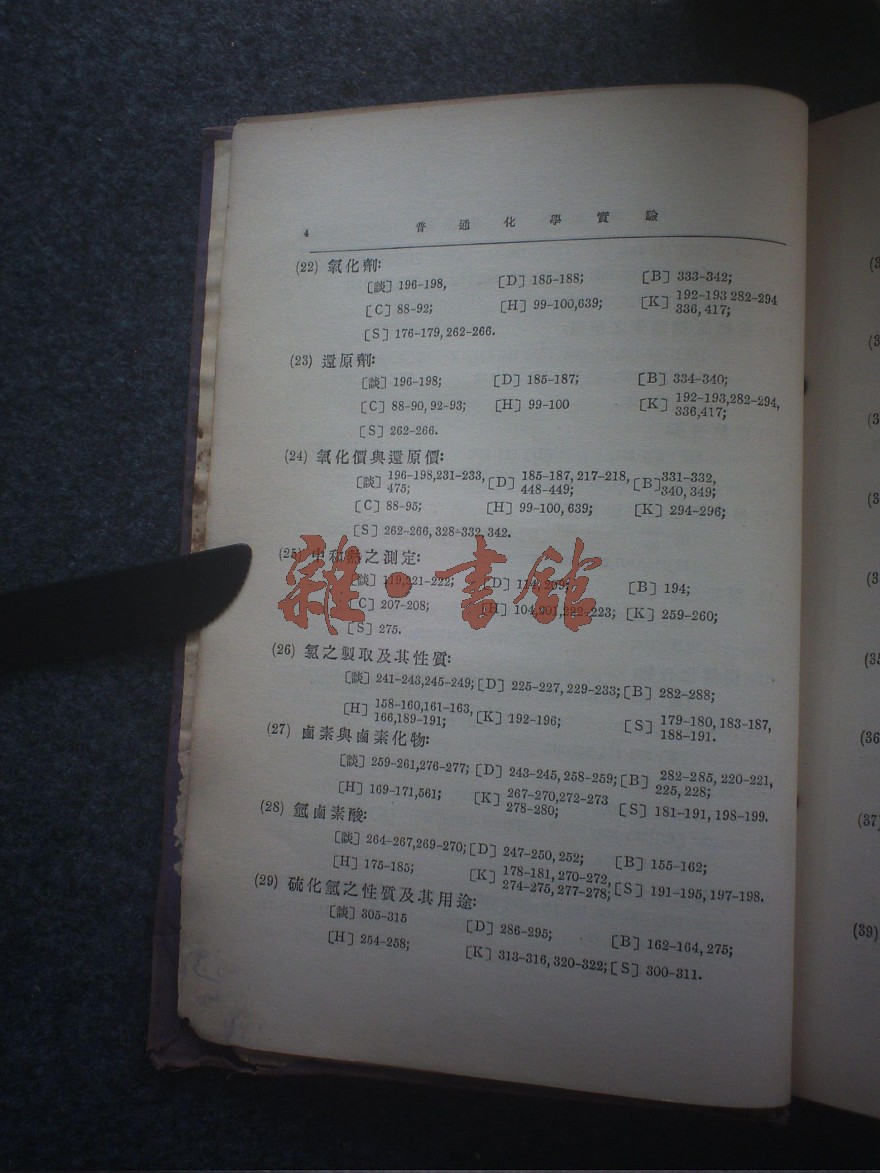 4 普通化學實驗
(22) 氧化劑:
[談] 196-198, [D] 185-188; [B] 333-342;
[C] 88-92; [H] 99-100,639; [K] 192-193 282-294 336, 417;
[S] 176-179, 262-266.
(23) 還原劑:
[談] 196-198; [D] 185-187; [B] 334-340;
[C] 88-90, 92-93; [H] 99-100 [K] 192-193,282-294, 336,417;
[S] 262-266.
(24) 氧化價與還原價:
[談] 196-198,231-233, 475; [D] 185-187, 217-218, 448-449; [B] 331-332, 340, 349;
[C] 88-95; [H] 99-100, 639; [K] 294-296;
[S] 262-266, 328-332, 342.
(25) 中和熱之測定:
[談] 119,221-222; [D] 114, 209; [B] 194;
[C] 207-208; [H] 104,201,222-223; [K] 259-260;
[S] 275.
雜·書館
(26) 氯之製取及其性質:
[談] 241-243,245-249; [D] 225-227, 229-233; [B] 282-288;
[H] 158-160,161-163, 166,189-191; [K] 192-196; [S] 179-180, 183-187, 188-191.
(27) 鹵素與鹵素化物:
[談] 259-261,276-277; [D] 243-245, 258-259; [B] 282-285, 220-221, 225, 228;
[H] 169-171,561; [K] 267-270,272-273 278-280; [S] 181-191, 198-199.
(28) 氫鹵素酸:
[談] 264-267,269-270; [D] 247-250, 252; [B] 155-162;
[H] 175-185; [K] 178-181, 270-272, 274-275, 277-278; [S] 191-195, 197-198.
(29) 硫化氫之性質及其用途:
[談] 305-315 [D] 286-295; [B] 162-164, 275;
[H] 254-258; [K] 313-316, 320-322; [S] 300-311.
(3
(3
(3
(3
(3
(35
(36
(37)
(39)